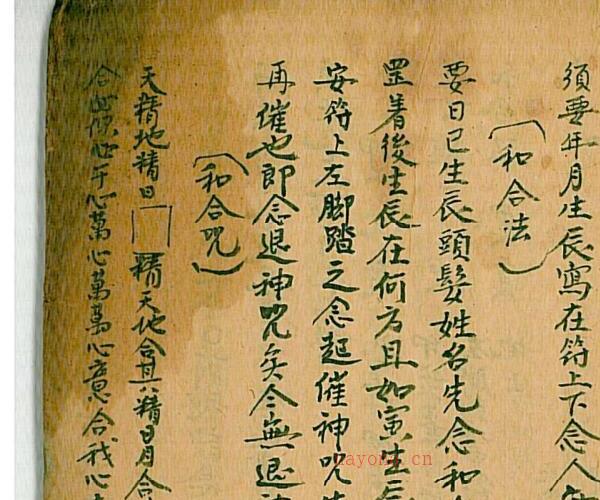 須要年月生辰寫在符上下念人
〔和合法〕
要日已生辰頭髮姓名先念和
罡着後生辰在何方且如寅生
安符上左脚踏之念起催神咒
再催也即念退神咒矣令無退神
〔和合咒〕
天精地精日□精天地合其精日月合
合 心千心萬心萬萬心意合我心
nayong.cn